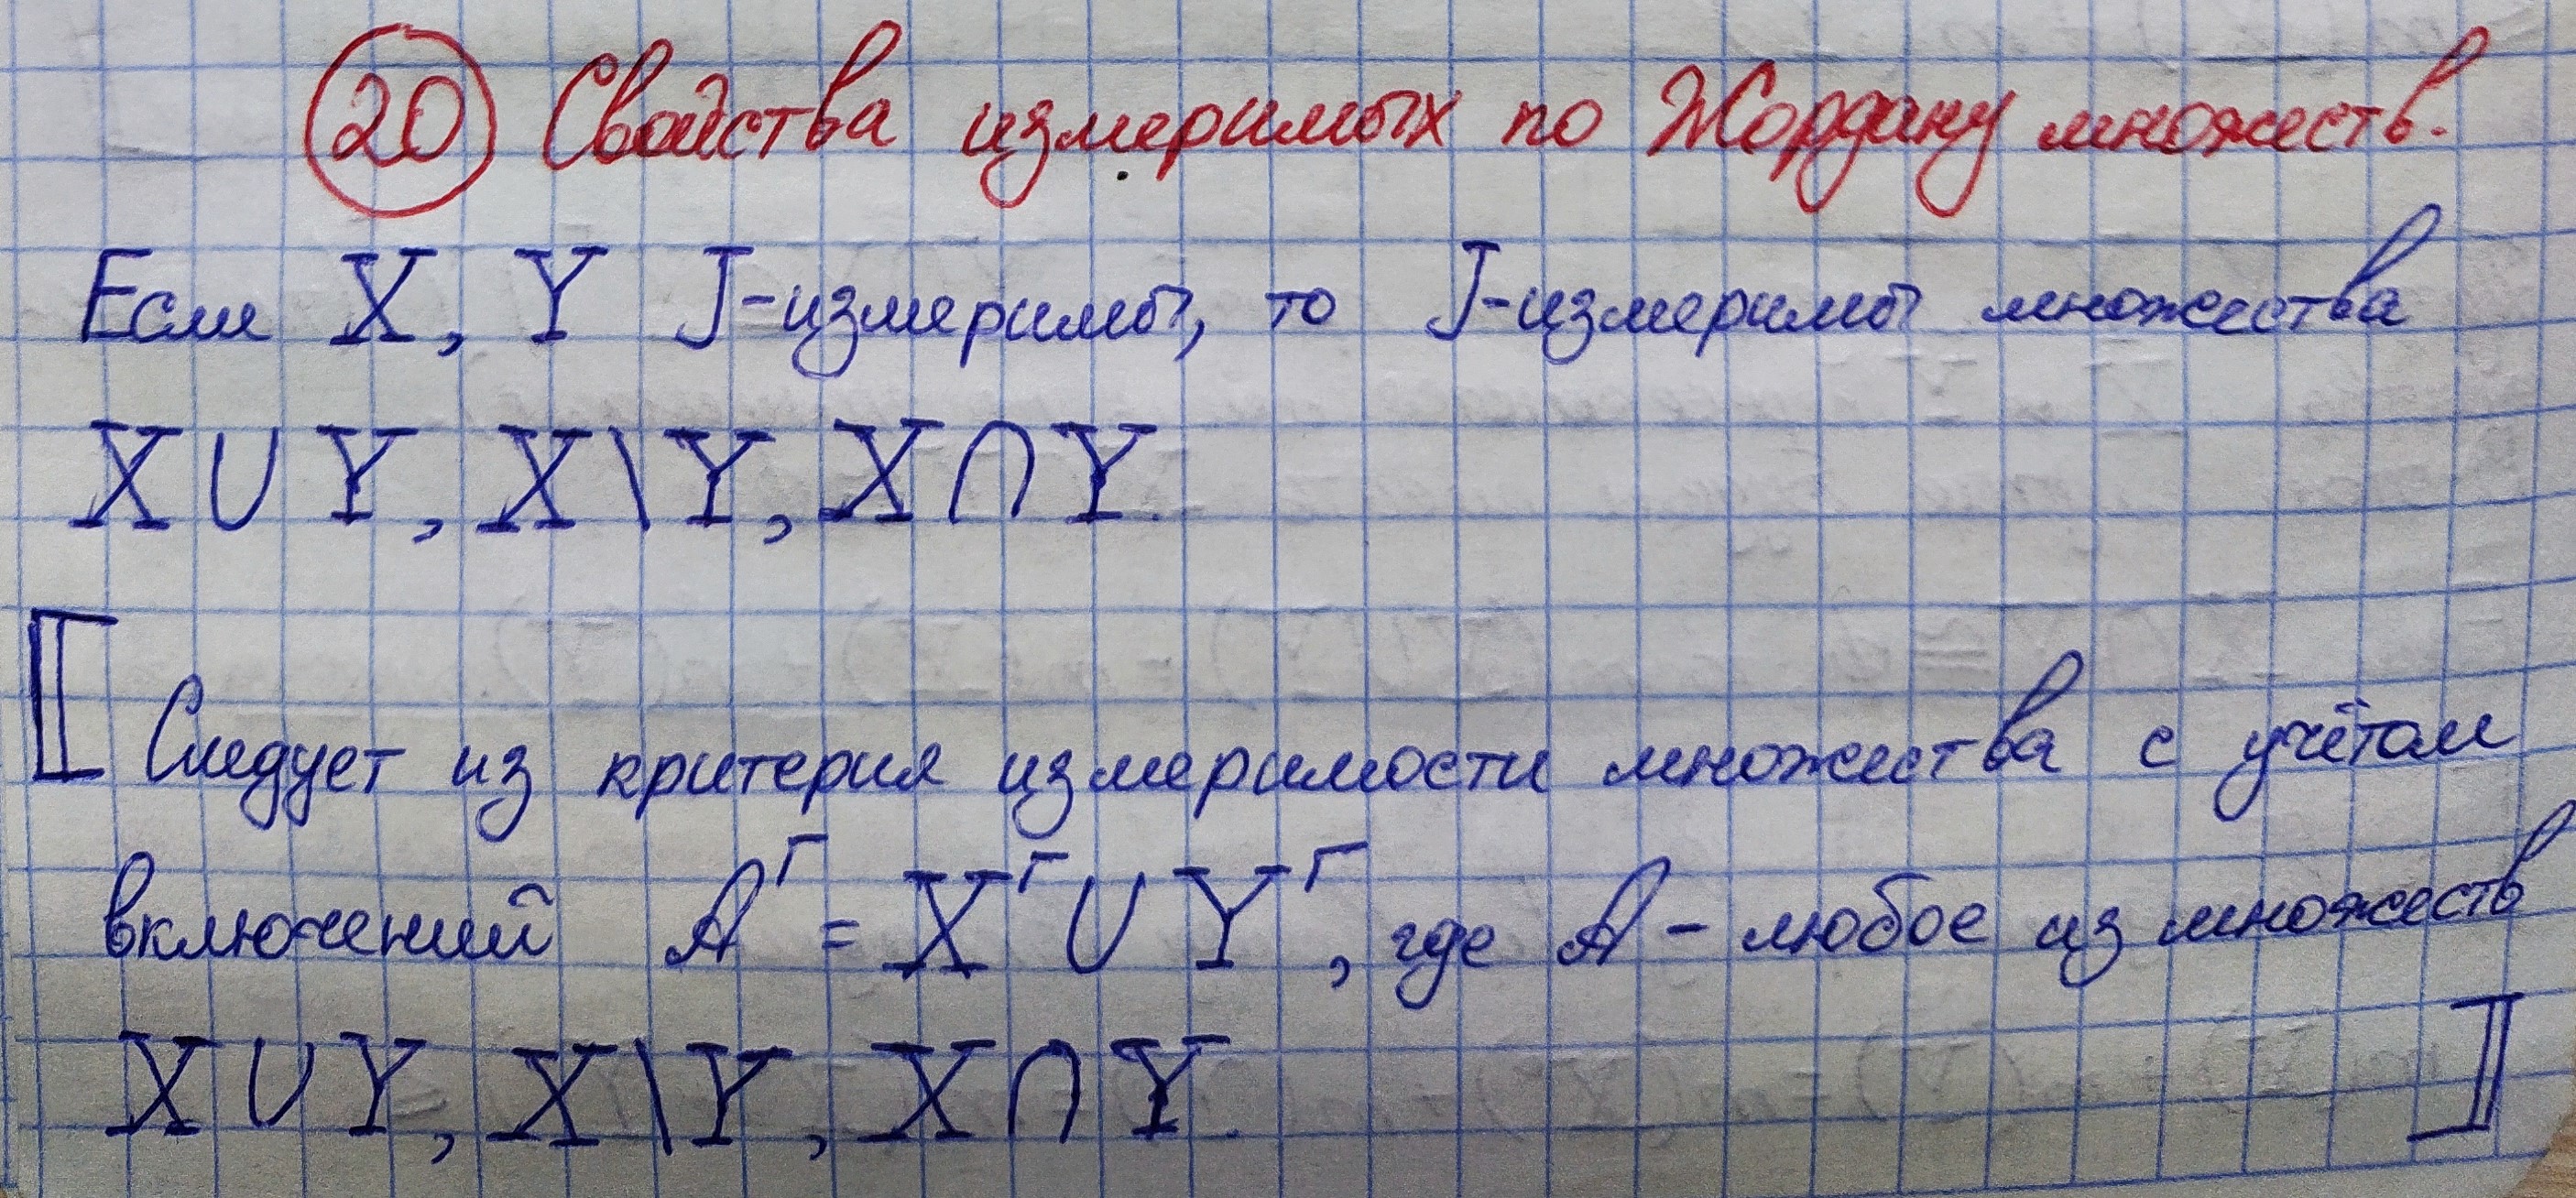 20 Свойства измеримых по Жордану множеств.
Если X, Y J-измеримы, то J-измеримы множества
X ∪ Y, X \ Y, X ∩ Y.
⟦ Следует из критерия измеримости множества с учётом
включений A^Г = X^Г ∪ Y^Г, где A - любое из множеств
X ∪ Y, X \ Y, X ∩ Y. ⟧